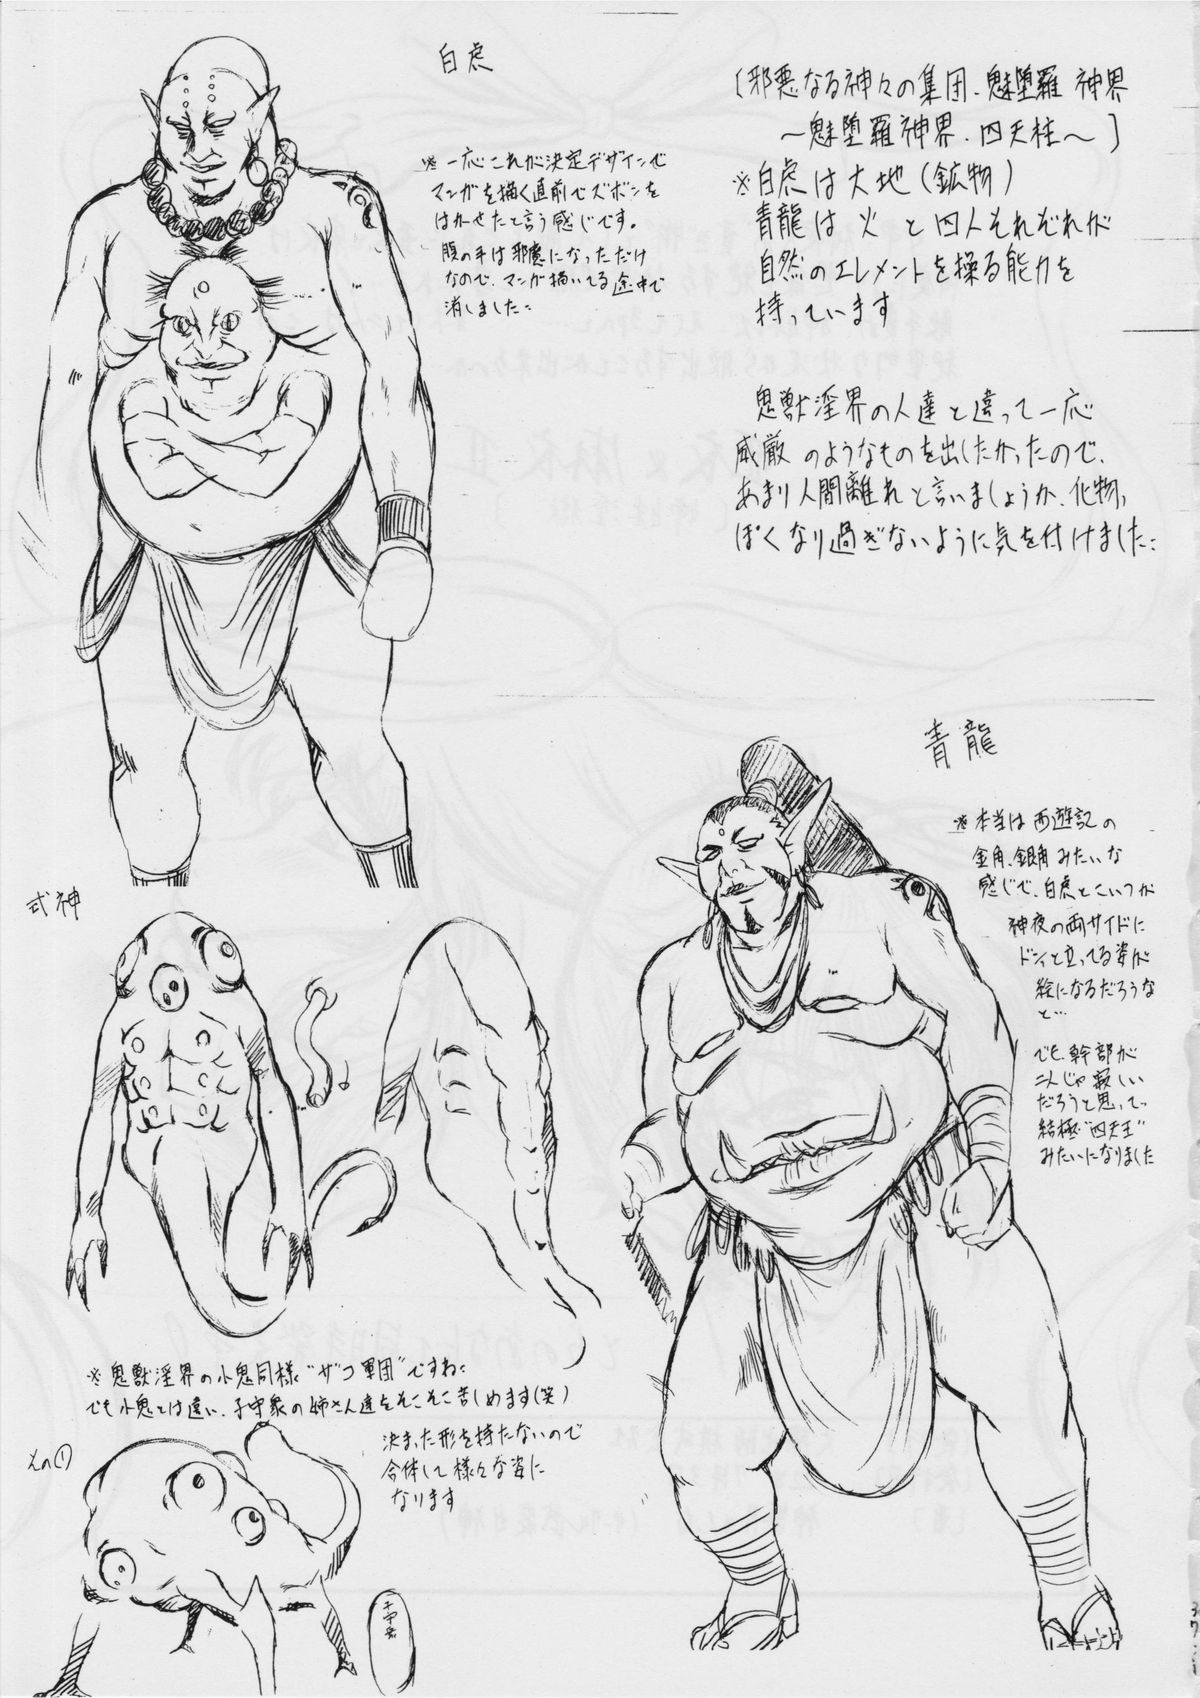 白虎
※一応これが決定デザインで
マンガを描く直前でズボンを
はかせたと言う感じです。
腹の手は邪悪になっただけ
なので、マンガ描いてる途中で
消しました…
[邪悪なる神々の集団、魅堕羅 神界
～魅堕羅神界、四天柱～]
※白虎は大地(鉱物)
青龍は 火 と四人それぞれが
自然のエレメントを操る能力を
持っています
鬼獣淫界の人達と違って一応
威厳 のようなものを出したかったので、
あまり人間離れと言いましょうか、化物っ
ぽくなり過ぎないように気を付けました…
青龍
※本当は西遊記の
金角、銀角みたいな
感じで、白虎とこいつが
神夜の両サイドに
ドンと立ってる姿が
絵になるだろうな
と…
でも、幹部が
二人じゃ寂しい
だろうと思って、
結極"四天王"
みたいになりました
式神
※鬼獣淫界の小鬼同様"ザコ軍団"ですね…
でも小鬼とは違い、子守衆の姉さん達をそこそこ苦しめます(笑)
決まった形を持たないので
合体して様々な姿に
なります
その①
子守衆